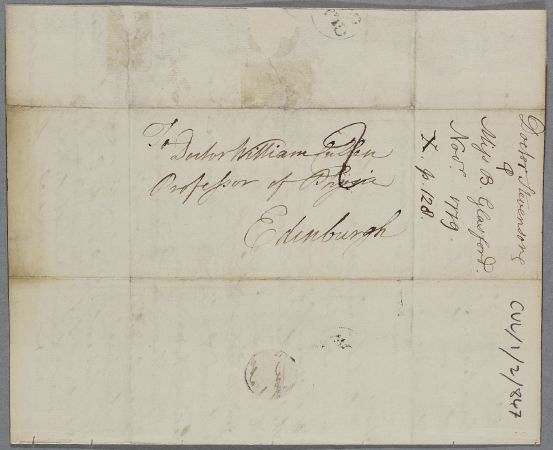 To
Doctor William Cullen
Professor of Physic
Edinburgh
Doctor Stevenson
Miss B. Glasford.
Novr. 1779.
X. p. 128.
CUL/1/2/847